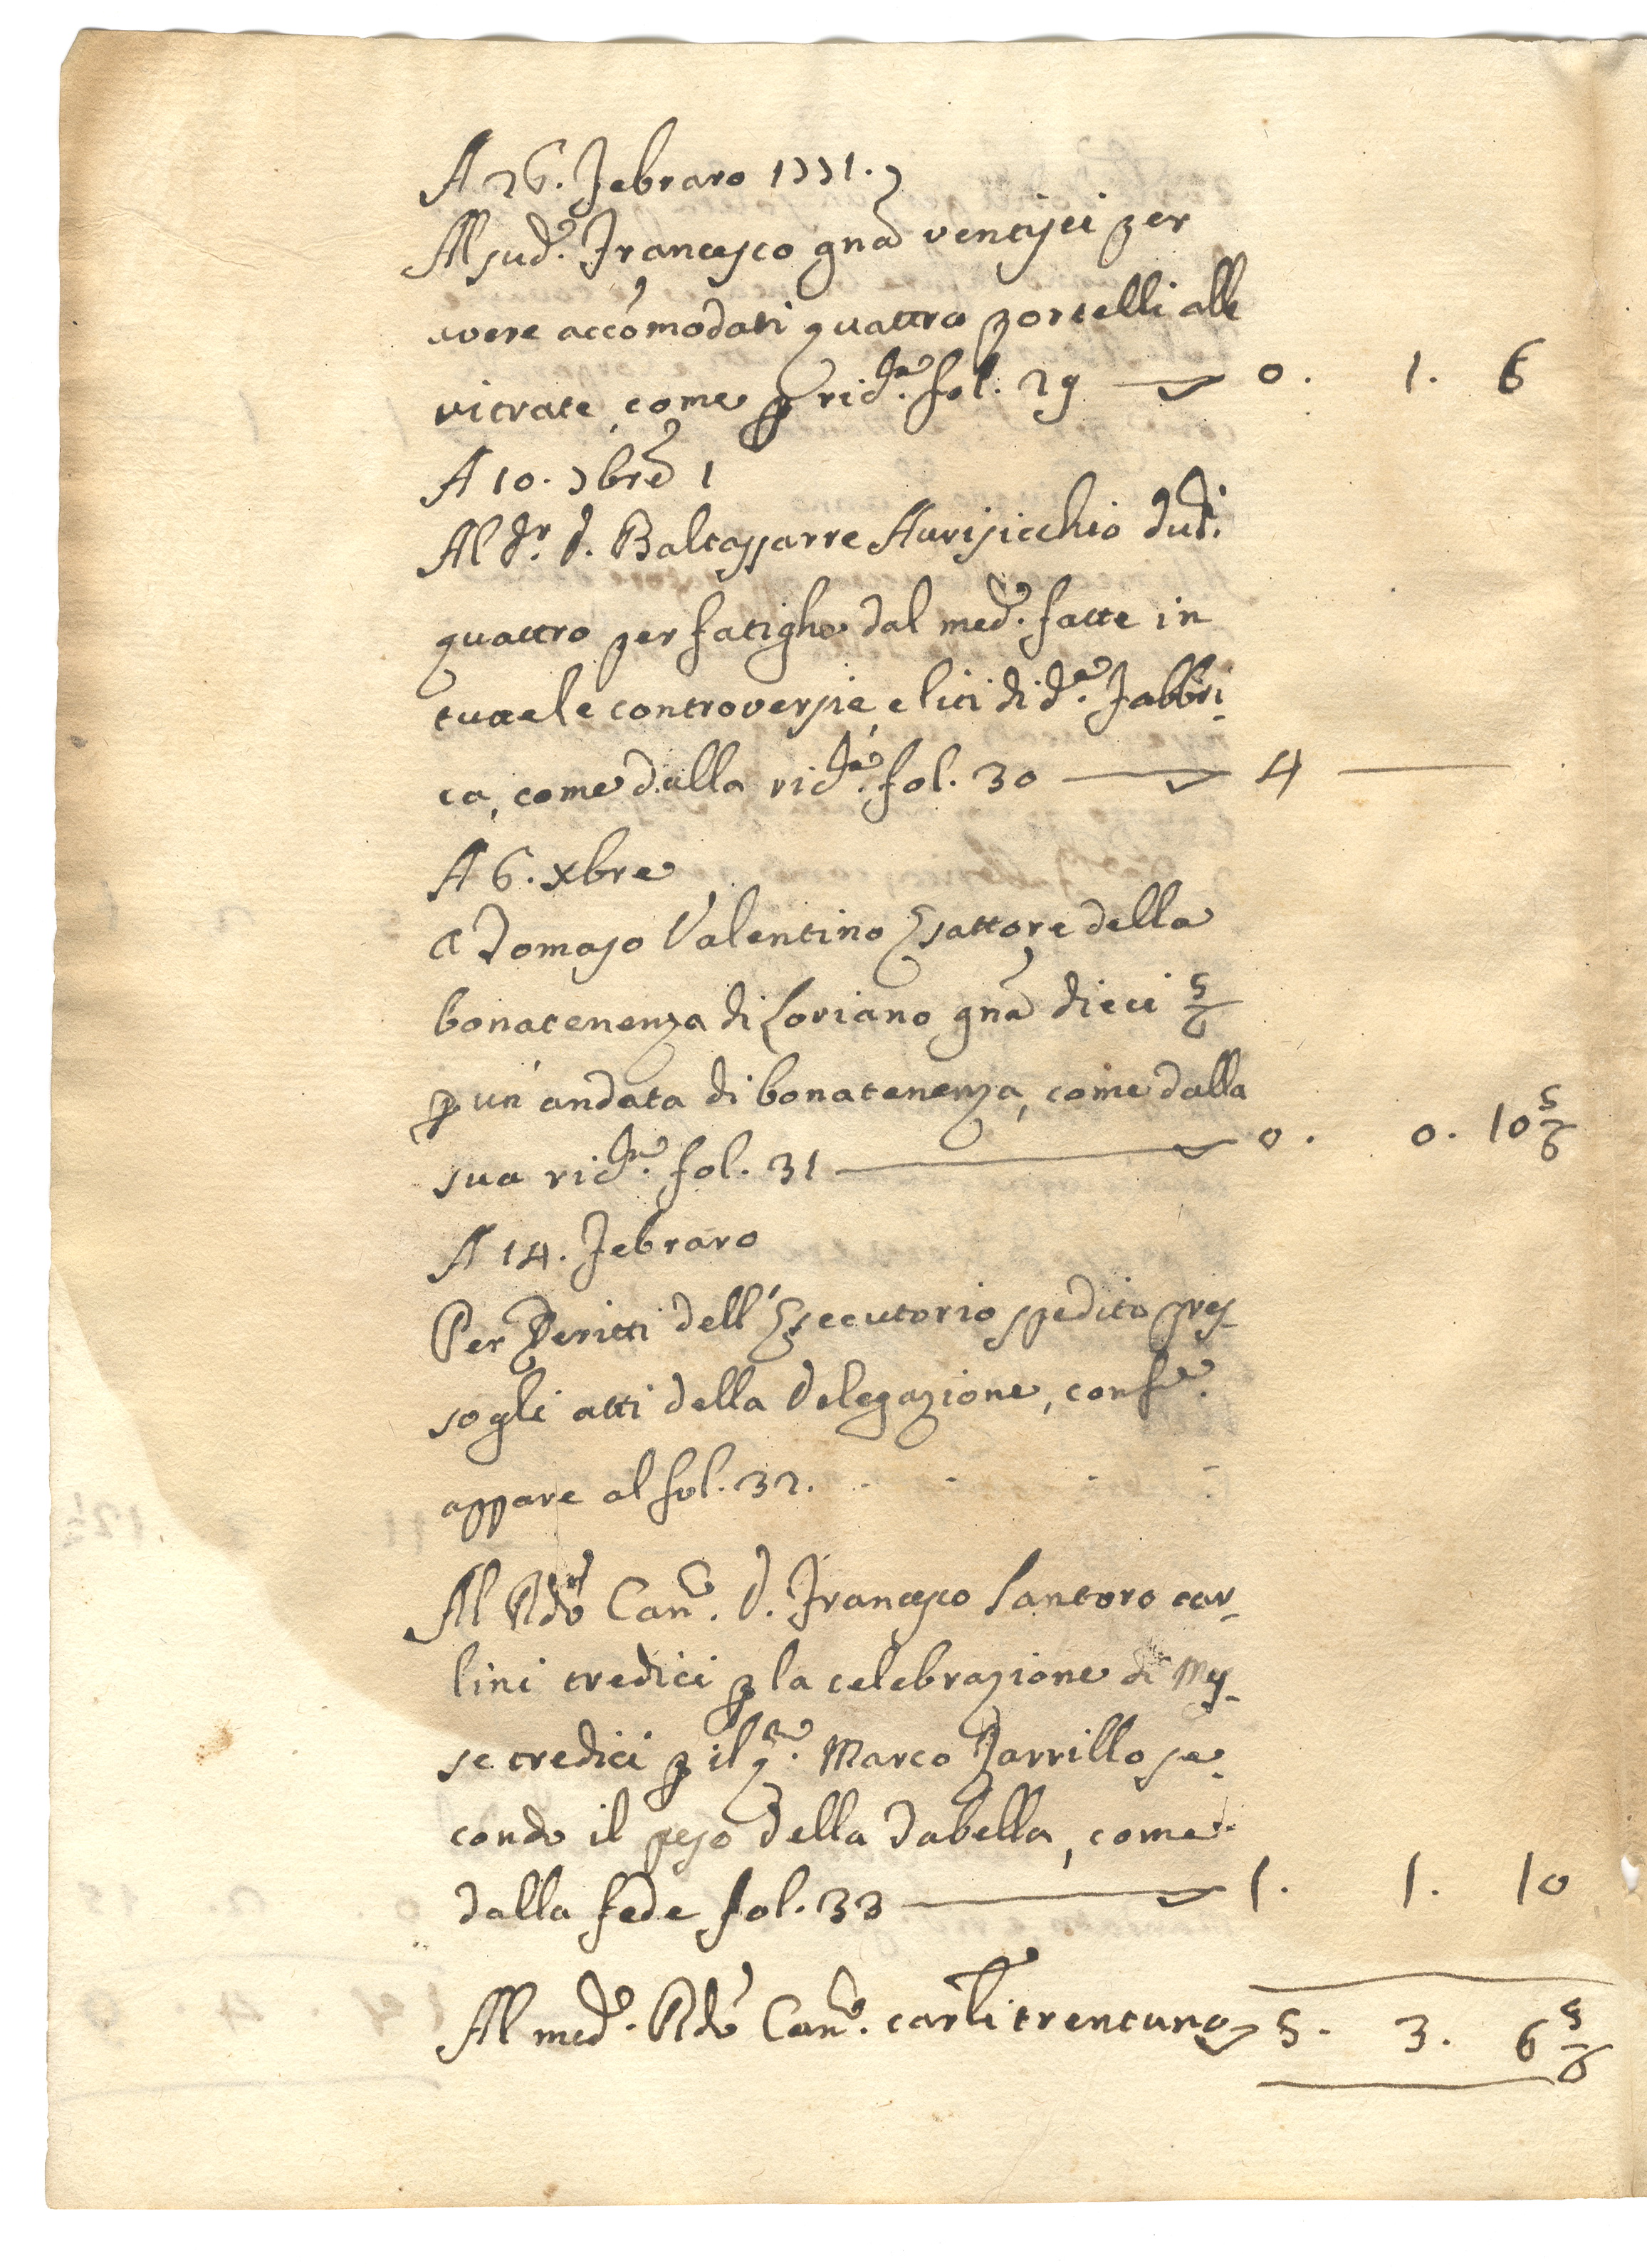 A 26. Febraro 1771.
Al sud.º Francesco gnã ventisei per
avere accõmodati quattro portelli alle
vitrate, come p ricᵗᵃ. fol. 29 — 0. 1. 6
A 10. 7brẽ 1
Al Dr. D. Baltassarre Aurisicchio duc.ti
quattro per fatighe dal med.º fatte in
tutte le controversie, e liti di d.ª Fabbri-
ca, come dalla ricᵗᵃ. fol. 30 — 4 —
A 6. xbre
A Tomaso Valentino Esattore della
bonatenenza di Loriano gnã dieci 5/6
p un' andata di bonatenenza, come dalla
sua ricᵗᵃ. fol. 31 — 0. 0. 10 5/6
A 14. Febraro
Per Deritti dell' Essecutorio spedito pres-
so gli atti della Delegazione, conf.e
appare al fol. 32. . . . .
Al Rdõ Can.º D. Francesco Santoro car-
lini tredici p la celebrazione di Mes-
se tredici p il q.m Marco Zarrillo se-
condo il peso della Tabella, come
dalla fede fol. 33 — 1. 1. 10
Al med.º Rdõ Can.º carli trentuno 5. 3. 6 5/6